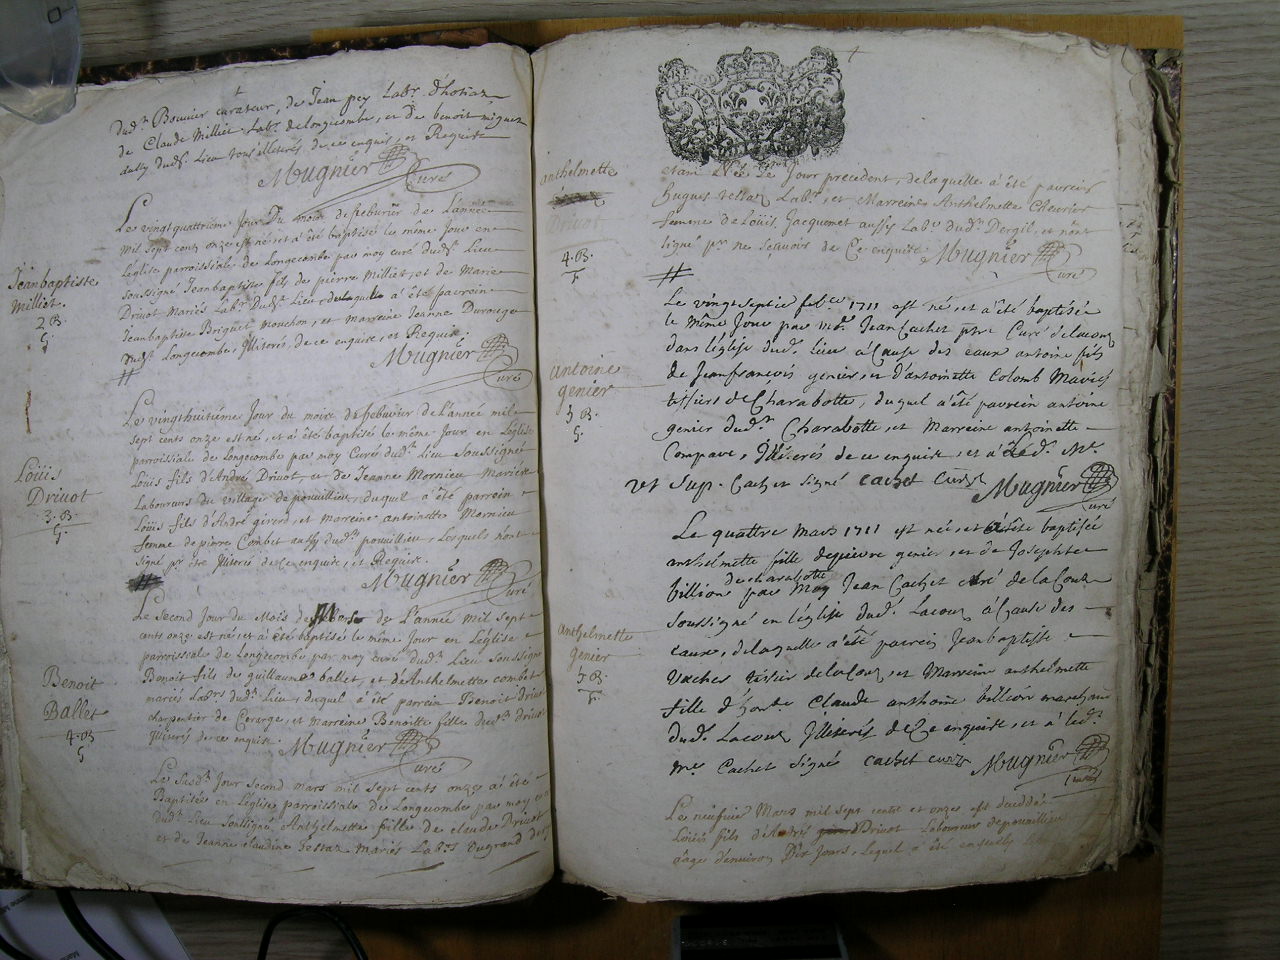 dud.t Bouvier curateur, de Jean pey Labr. d'hotiaz
de Claude Milliet Labr. de Longecombe, et de benoit miguet
aussy dud. Lieu tous illiterés de ce enquis, et Requis
Mugnier
Curé
Le vingtquattriéme Jour Du mois de feburier de L'année
mil sept cents onze est né et a été baptisé le même Jour en
L'église parroissiale de Longecombe par moy curé dud. Lieu
soussigné Jeanbaptiste fils de pierre Milliet, et de Marie
Drivot mariés Labrs Dud. Lieu, de laquelle a été parrein
Jeanbaptiste Briguet mouchon, et marreine Jeanne
dud. Longecombe, Illiterés, de ce enquis, et Requis.
Mugnier
Curé
Jeanbaptiste
Milliet
2 B.
G.
Le vingthuitiéme Jour du moix de febuvier de L'année mil
sept cents onze est né, et a été baptisé le même Jour en L'église
parroissiale de Longecombe par moy Curé dud. Lieu Soussigné
Loüis fils d'André Drivot, et de Jeanne Mornieu Mariés
Laboureurs du village de pouvillieu, duquel a été parrein
Loüis fils d'André girerd, et marreine antoinette Mornieu
femme de pierre Combet aussy dud. pouvillieu, Lesquels n'ont
signé pr être Illiterés de Ce enquis, et Requis.
Mugnier
Curé
Loüis
Drivot
3. B.
G.
Le second Jour du Mois de Mars de L'année Mil sept
cents onze est né, et a été baptisé le même Jour en L'église
parroissiale de Longecombe par moy curé dud. Lieu soussigné
Benoit fils de guillaume ballet, et de Anthelmette combet
mariés Labrs dud. Lieu, duquel a été parrein Benoit Drivot
charpentier de et marreine Benoitte fille dud. Drivot
Illiterés de ce enquis.
Mugnier
Curé
Benoit
Ballet
4. B
G
Le susd. Jour second mars mil sept cents onze a été
Baptisée en L'église parroissiale de Longecombe par moy curé
dud. Lieu soussigné, Anthelmette fille de claude Drivot
et de Jeanne claudine Testaz Mariés Labrs
anthelmette
Drivot
4. B.
F
etant Née Le Jour precedent, de laquelle a été parrein
hugues testaz Labr, et Marreine Anthelmette Chevrier
femme de Loüis Jacquemet aussy Labr dud. Dergil, et n'ont
signé pr ne sçavoir de Ce enquis
Mugnier
Curé
Le vingtseptie feb. 1711 est né, et a été baptisé
le même Jour par mr. Jean Cachet ptre Curé de lacouz
dans l'église dud. lieu à Cause des eaux antoine fils
de Jeanfrançois genier, et d'antoinette Colomb Mariés
tissiers de Charabotte, duquel a été parrein antoine
genier dud. Charabotte, et Marreine antoinette
Compare, Illiterés de ce enquis, et a Led. Mr.
ut sup. Cachet signé cachet curé
Mugnier
Curé
antoine
genier
5 B.
G.
Le quattre Mars 1711 est né, et a été baptisée
anthelmette fille de pierre genier, et de Josephte
de charabotte
billion par Moy Jean Cachet curé de la Couz
Soussigné en l'église dud. Lacouz à Cause des
eaux, de laquelle a été parrein Jeanbaptiste
Vaches tissier de la Couz, et Marreine anthelmette
fille d'honête Claude anthoine billion marchand
dud. Lacouz Illiterés de Ce enquis, et a led.
mre Cachet signé cachet curé
Mugnier
Curé
anthelmette
genier
5 B.
F.
Le neufvie Mars mil sept cents et onze est decedé
Loüis fils d'André Drivot Laboureur de pouvillieu
d'age d'environ Dix Jours, Lequel a été ensevely